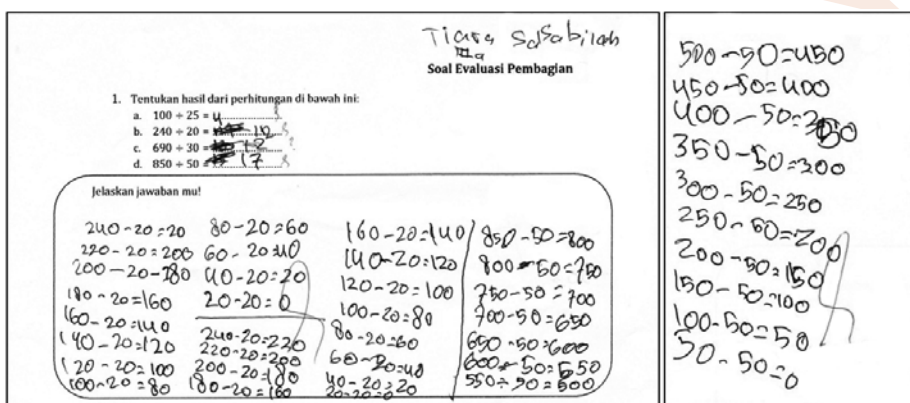 Tiara Salsabilah
III a
Soal Evaluasi Pembagian
1. Tentukan hasil dari perhitungan di bawah ini:
a. 100 ÷ 25 = 4
b. 240 ÷ 20 = 12
c. 690 ÷ 30 =
d. 850 ÷ 50 = 17
Jelaskan jawaban mu!
240-20=20
220-20=200
200-20=180
180-20=160
160-20=140
140-20=120
120-20=100
100-20=80
80-20=60
60-20=40
40-20=20
20-20=0
240-20=220
220-20=200
200-20=180
180-20=160
160-20=140
140-20=120
120-20=100
100-20=80
80-20=60
60-20=40
40-20=20
20-20=0
850-50=800
800-50=750
750-50=700
700-50=650
650-50=600
600-50=550
550-50=500
500-50=450
450-50=400
400-50=350
350-50=300
300-50=250
250-50=200
200-50=150
150-50=100
100-50=50
50-50=0